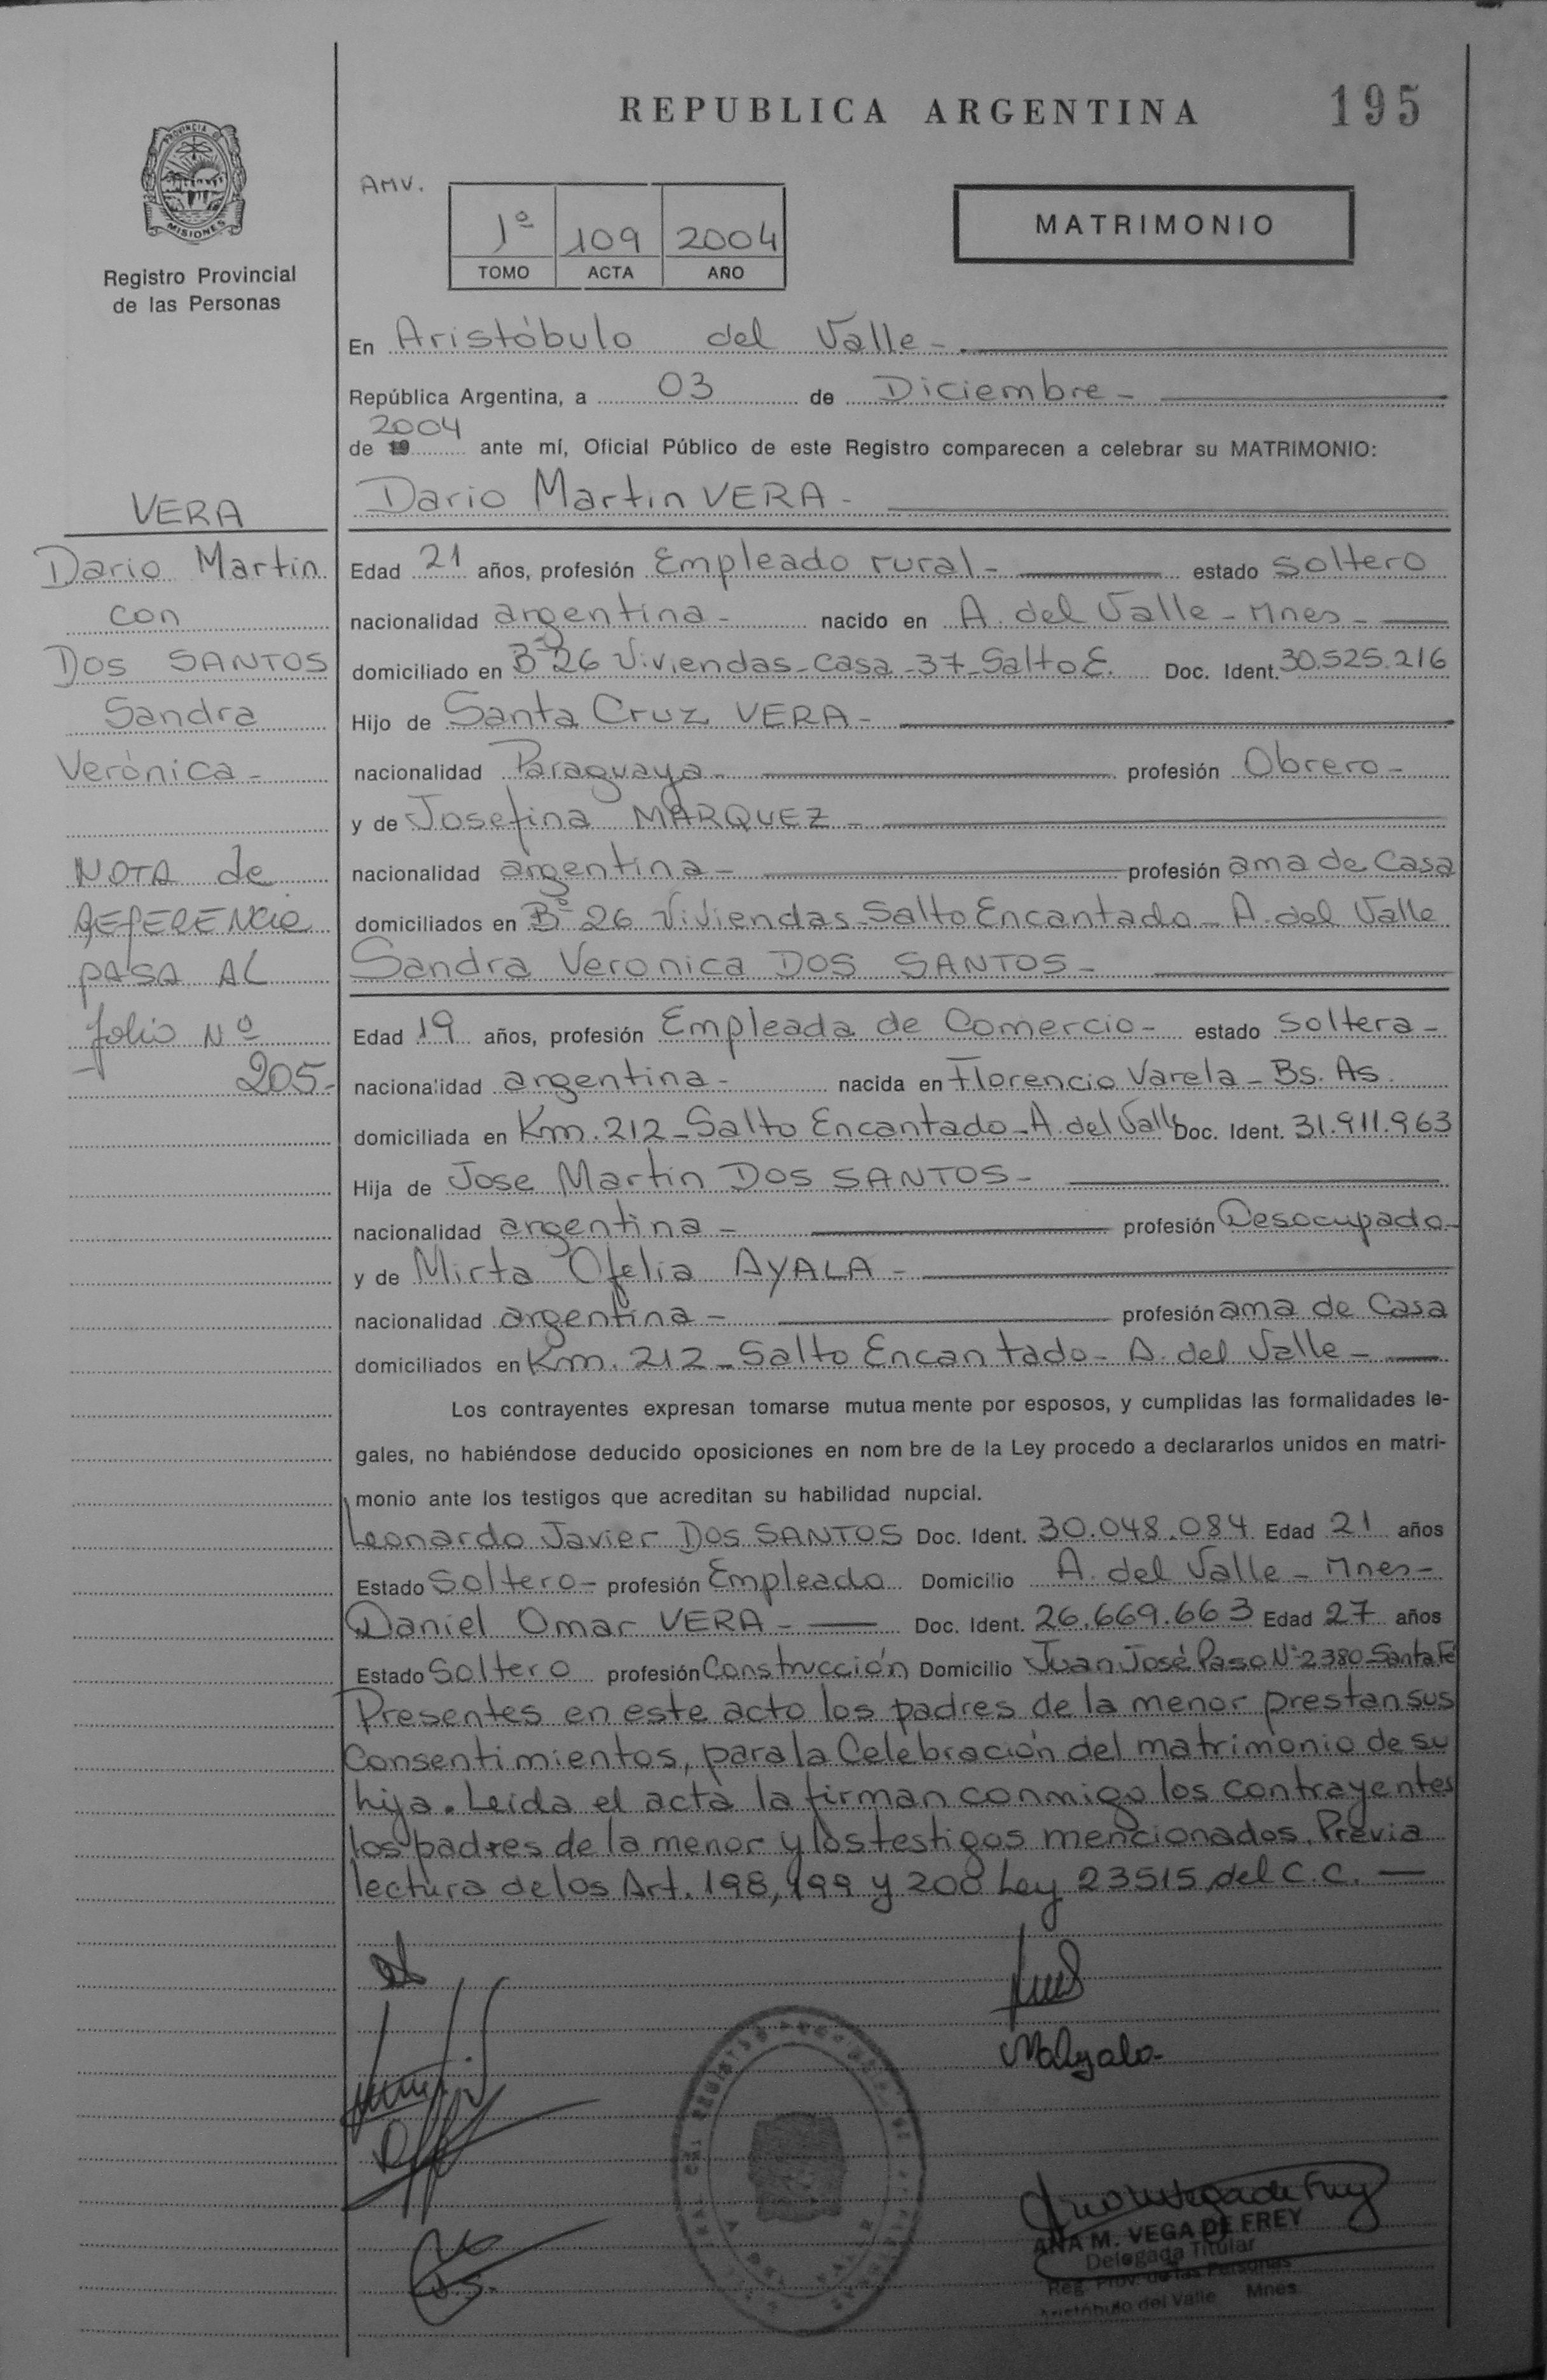 REPUBLICA ARGENTINA
195
PROVINCIA DE
MISIONES
Registro Provincial
de las Personas
AMV.
1º 109 2004
TOMO ACTA AÑO
MATRIMONIO
En Aristóbulo del Valle -
República Argentina, a 03 de Diciembre -
2004
de 19 ante mí, Oficial Público de este Registro comparecen a celebrar su MATRIMONIO:
Dario Martin VERA -
VERA
Dario Martin
con
DOS SANTOS
Sandra
Verónica -
NOTA de
REFERENCIA
PASA AL
folio Nº
205.-
Edad 21 años, profesión Empleado rural - estado soltero
nacionalidad argentina - nacido en A. del Valle - Mnes -
domiciliado en Bº 26 Viviendas - casa - 37 - Salto E. Doc. Ident. 30.525.216
Hijo de Santa Cruz VERA -
nacionalidad Paraguaya - profesión Obrero -
y de Josefina MARQUEZ -
nacionalidad argentina - profesión ama de Casa
domiciliados en Bº 26 Viviendas - Salto Encantado - A. del Valle
Sandra Veronica DOS SANTOS -
Edad 19 años, profesión Empleada de Comercio - estado soltera -
nacionalidad argentina - nacida en Florencio Varela - Bs. As.
domiciliada en Km. 212 - Salto Encantado - A. del Valle Doc. Ident. 31.911.963
Hija de Jose Martin DOS SANTOS -
nacionalidad argentina - profesión Desocupado -
y de Mirta Ofelia AYALA -
nacionalidad argentina - profesión ama de Casa
domiciliados en Km. 212 - Salto Encantado - A. del Valle -
Los contrayentes expresan tomarse mutua mente por esposos, y cumplidas las formalidades le-
gales, no habiéndose deducido oposiciones en nom bre de la Ley procedo a declararlos unidos en matri-
monio ante los testigos que acreditan su habilidad nupcial.
Leonardo Javier DOS SANTOS Doc. Ident. 30.048.084 Edad 21 años
Estado Soltero - profesión Empleado Domicilio A. del Valle - Mnes -
Daniel Omar VERA - Doc. Ident. 26.669.663 Edad 27 años
Estado Soltero profesión Construcción Domicilio Juan José Paso Nº 2380 - Santa Fé
Presentes en este acto los padres de la menor prestan sus
Consentimientos, para la Celebración del matrimonio de su
hija. Leída el acta la firman conmigo los contrayentes
los padres de la menor y los testigos mencionados. Previa
lectura de los Art. 198, 199 y 200 Ley 23515 del C.C. -
MAyala-
ANA M. VEGA DE FREY
Delegada Titular
Reg. Prov. de las Personas
Aristóbulo del Valle Mnes